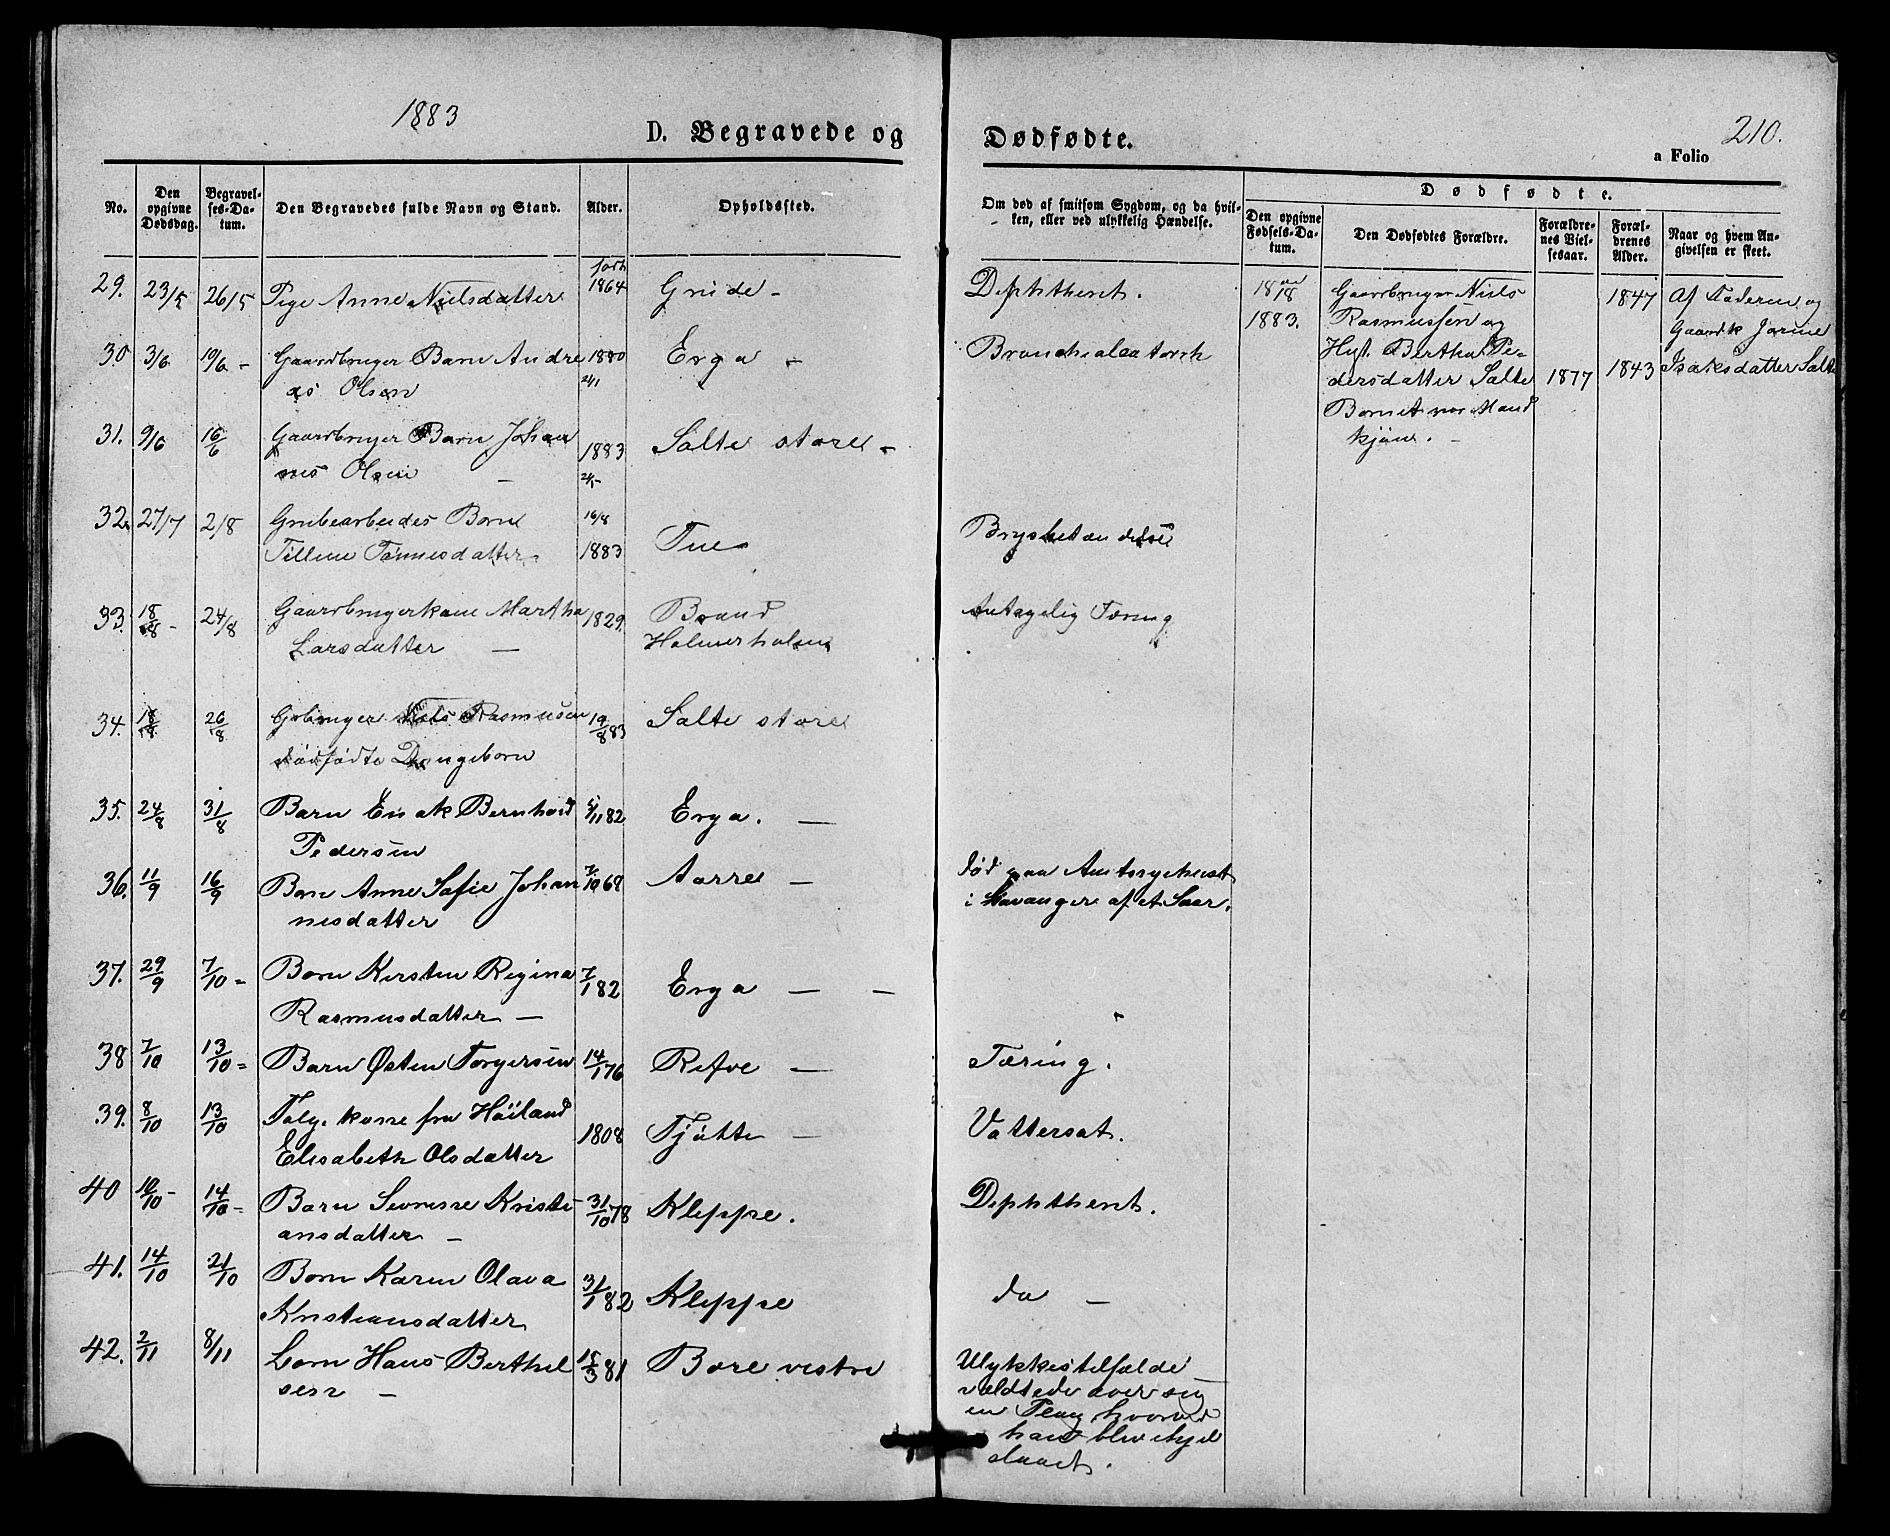 1883
D. Begravede og
Dødfødte.
210.
a Folio
No.
Den opgivne Dødsdag.
Begravelses-Datum.
Den Begravedes fulde Navn og Stand.
Alder.
Opholdssted.
Om død af smitsom Sygdom, og da hvilken, eller ved ulykkelig Hændelse.
Dødfødte.
Den opgivne Fødsels-Datum.
Den Dødfødtes Forældre.
Forældrenes Vielsesaar.
Forældrenes Alder.
Naar og hvem Angivelsen er skeet.
29. 23/5 26/5 Pige Anne Nielsdatter født 1864 Grude - Dephtherit.
30 3/6 10/6 - Gaardbruger Barn Andre
as Olsen 1880 24/1 Erga - Bronchialcatarrh
31. 9/6 16/6 Gaardbruger Barn Johan
nes Olsen - 1883 Salte store -
32. 27/7 2/8 Grubearbeides Barn
Tilline Tønnesdatter 16/8 1883 Tue Brystbetændelse
33. 18/8 - 24/8 Gaardbrugerkone Martha
Larsdatter - 1829. Braud
Holmerholen Antagelig Tæring
34. 18/8 26/8 Gbruger Niels Rasmussen
dødfødte Drengebarn 19/8 83 Salte store
35. 24/8 31/8 Barn Enak Bernhard
Pedersen 5/11 82 Erga. -
36. 11/9 16/9 Barn Anne Sofie Johan
nesdatter 7/10 68 Aarre - død paa Amtssygehuset
i Stavanger af et Saar.
37. 29/9 7/10 - Barn Kirsten Regina
Rasmusdatter - 7/1 82 Erga - -
38 7/10 13/10 - Barn Østen Torgersen 14/1 76 Refve - Tæring.
39. 8/10 13/10 Følg. kone fra Høiland
Elisabeth Olsdatter 1808 Tjøtte - Vattersot.
40 10/10 - 14/10 - Barn Severine Kristi
ansdatter - 31/10 78 Kleppe. Dephtherit.
41. 14/10 21/10 Barn Karen Olava
Kristiansdatter 31/1 82 Kleppe do -
42. 2/11 8/11 Barn Hans Berthel
sen - 15/3 81 Bore vestre Ulykkestilfælde
væltede over sig
en Plog hvorved
han blev ihjel
slaaet.
18 18/8
1883.
Gaardbruger Niels
Rasmussen og
Hust. Bertha Pe-
dersdatter Salte
Barnet var Mand
kjøn. -
1877
1847
1843
Af Faderen og
Gaardk Jorine
Isaksdatter Salte